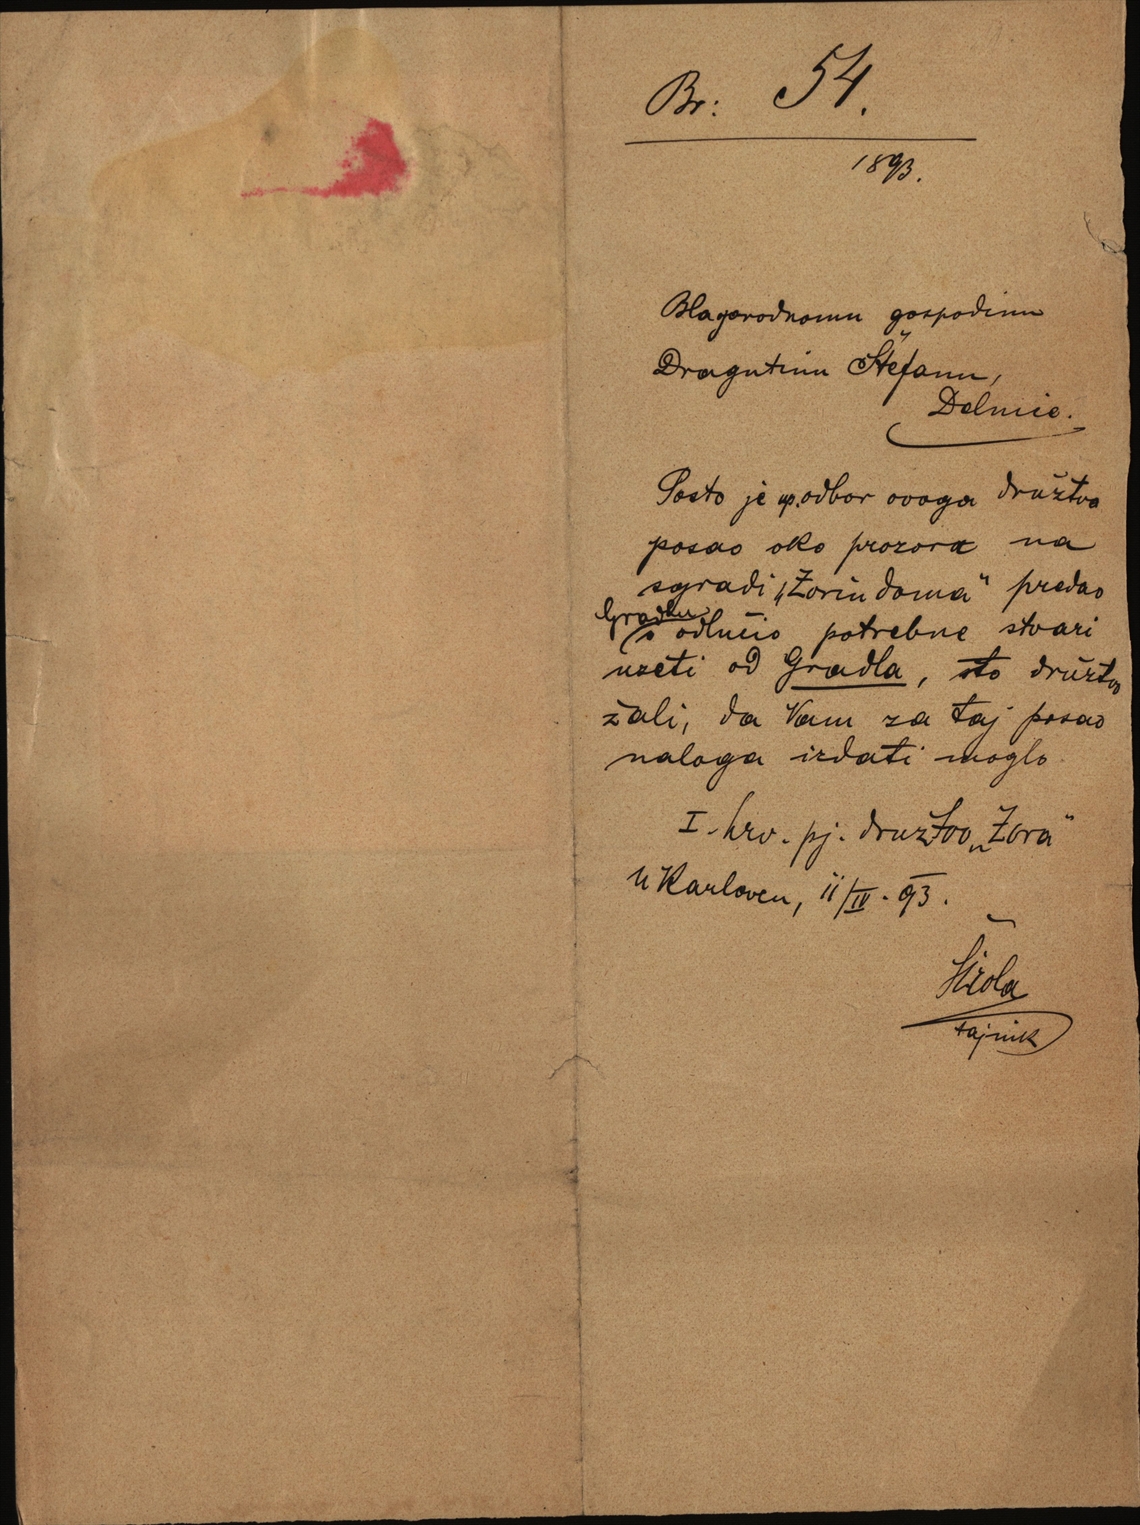 Br: 54.
1893.
Blagorodnomu gospodinu
Dragutinu Štefanu,
Delnice.
Pošto je up. odbor ovoga družtva
posao oko prozora na
sgradi „Zorin doma“ predao
Gradlu
odlučio potrebne stvari
uzeti od Gradla, što družtvo
žali, da Vam za taj posao
naloga izdati moglo
I. hrv. pj. družtvo „Zora“
U Karlovcu, 11/IV. 93.
Širola
tajnik